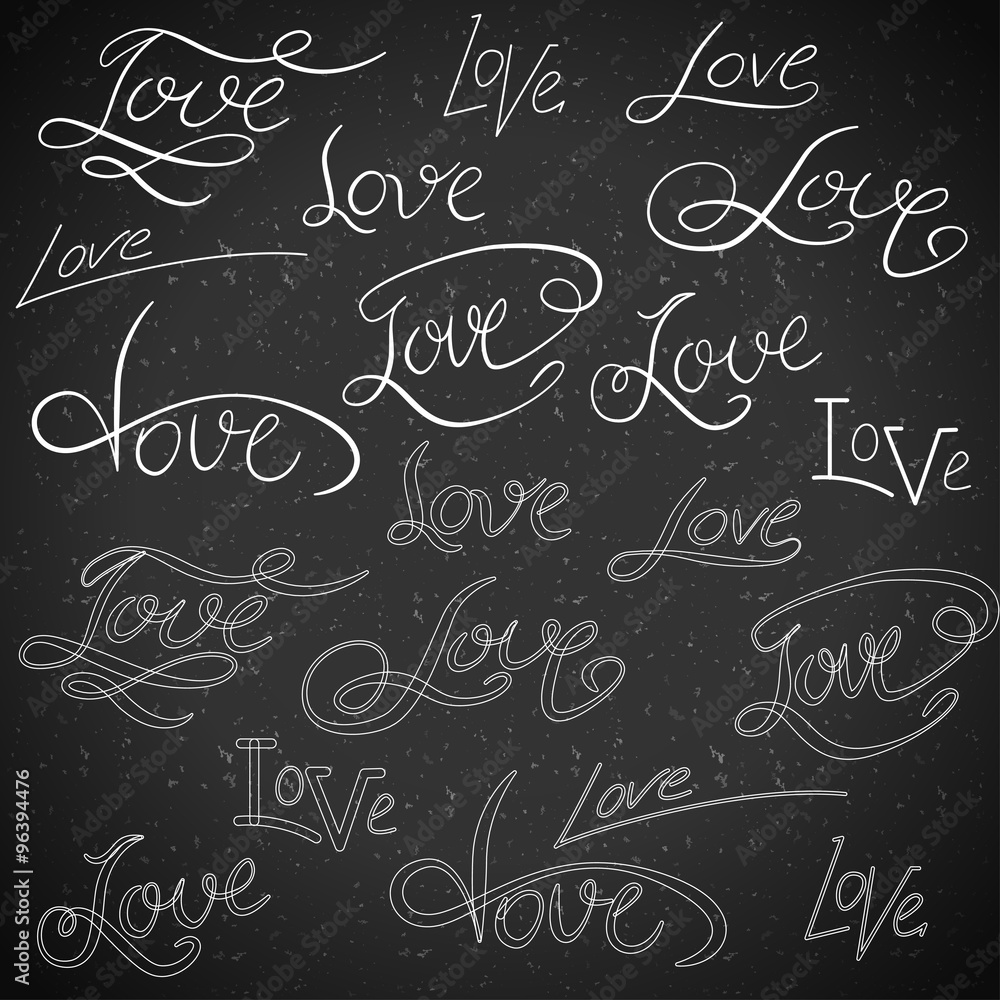 Love LoVe. Love
Love Love
Love
Love Love
Love
LoVe
Love Love
Love Love Love
LoVe Love
Love Love LoVe.
Adobe Stock | #96394476